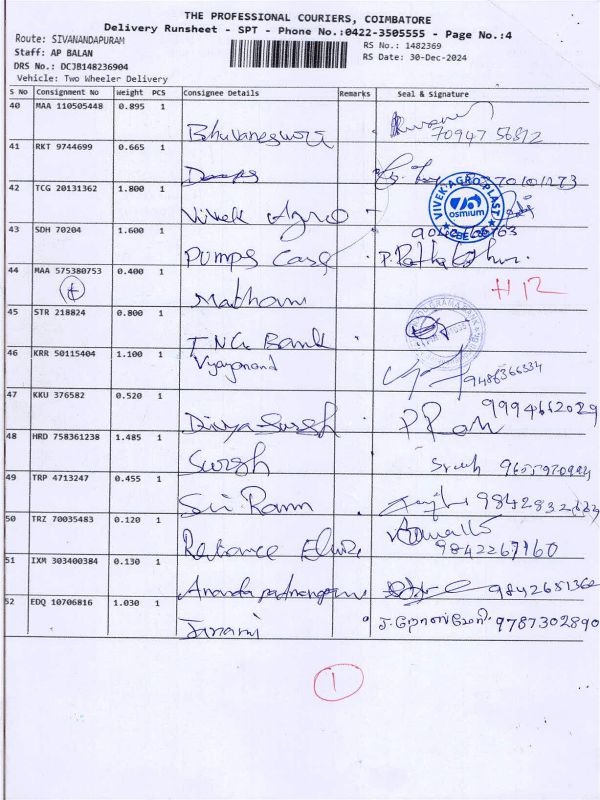 THE PROFESSIONAL COURIERS, COIMBATORE
Delivery Runsheet - SPT - Phone No.:0422-3505555 - Page No.:4
Route: SIVANANDAPURAM
RS No.: 1482369
Staff: AP BALAN
RS Date: 30-Dec-2024
DRS No.: DCJB148236904
Vehicle: Two Wheeler Delivery
S No Consignment No Weight PCS Consignee Details Remarks Seal & Signature
40 MAA 110505448 0.895 1
Bhuvaneswori 70947 56812
41 RKT 9744699 0.665 1
Deepa
42 TCG 20131362 1.800 1
VIVEK AGRO PLAST
osmium
CBE
Vivek Agro
43 SDH 70204 1.600 1
Pumps Case
44 MAA 575380753 0.400 1
HR
Matham
45 STR 218824 0.800 1
T.N.G Bank
46 KRR 50115404 1.100 1
Vijayanand 9486366334
47 KKU 376582 0.520 1
Divya Suresh 9994662029
48 HRD 758361238 1.485 1
Suresh
49 TRP 4713247 0.455 1
Sri Ram
50 TRZ 70035483 0.120 1
Reliance 9842267160
51 IXM 303400384 0.130 1
9842651360
52 EDQ 10706816 1.030 1
Janani 9787302890
1